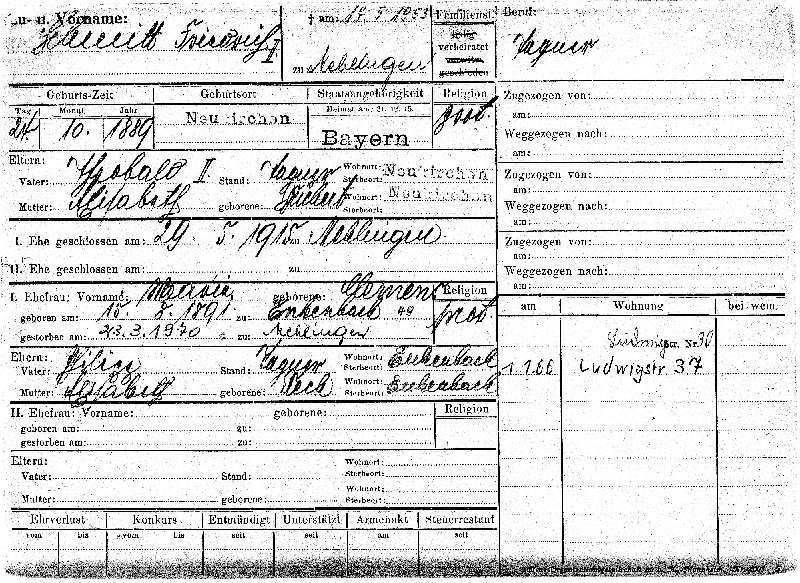 u- u. Vorname:
Schmitt Friedrich II
† am: 17 5 1953
zu Mehlingen
Familienst.
ledig
verheiratet
verwitw.
geschieden
Beruf:
Tagner
Geburts-Zeit
Tag Monat Jahr
24 10. 1889
Geburtsort
Neukirchen
Staatsangehörigkeit
Heimat am: 21. 12. 15.
Bayern
Religion
prot.
Eltern:
Vater: Theobald II Stand: Tagner Wohnort: Sterbeort: Neukirchen
Mutter: Elisabeth geborene: Wohnort: Sterbeort: Neukirchen
I. Ehe geschlossen am: 29. 5. 1915 zu Mehlingen
II. Ehe geschlossen am: zu
I. Ehefrau: Vorname: Maria geborene: Clemens
geboren am: 15. 8. 1891 zu: Enkenbach
gestorben am: 23.3.1970 zu: Mehlingen
Religion
prot.
Eltern:
Vater: Stand: Tagner Wohnort: Sterbeort: Enkenbach
Mutter: Elisabeth geborene: Wohnort: Sterbeort: Enkenbach
II. Ehefrau: Vorname: geborene:
geboren am: zu:
gestorben am: zu:
Religion
Eltern:
Vater: Stand: Wohnort: Sterbeort:
Mutter: geborene: Wohnort: Sterbeort:
Ehrverlust Konkurs Entmündigt Unterstützt Armenakt Steuerrestant
vom bis vom bis seit seit am seit
Zugezogen von:
am:
Weggezogen nach:
am:
Zugezogen von:
am:
Weggezogen nach:
am:
Zugezogen von:
am:
Weggezogen nach:
am:
am Wohnung bei wem
Str. Nr. 30
1 1.66 Ludwigstr 37